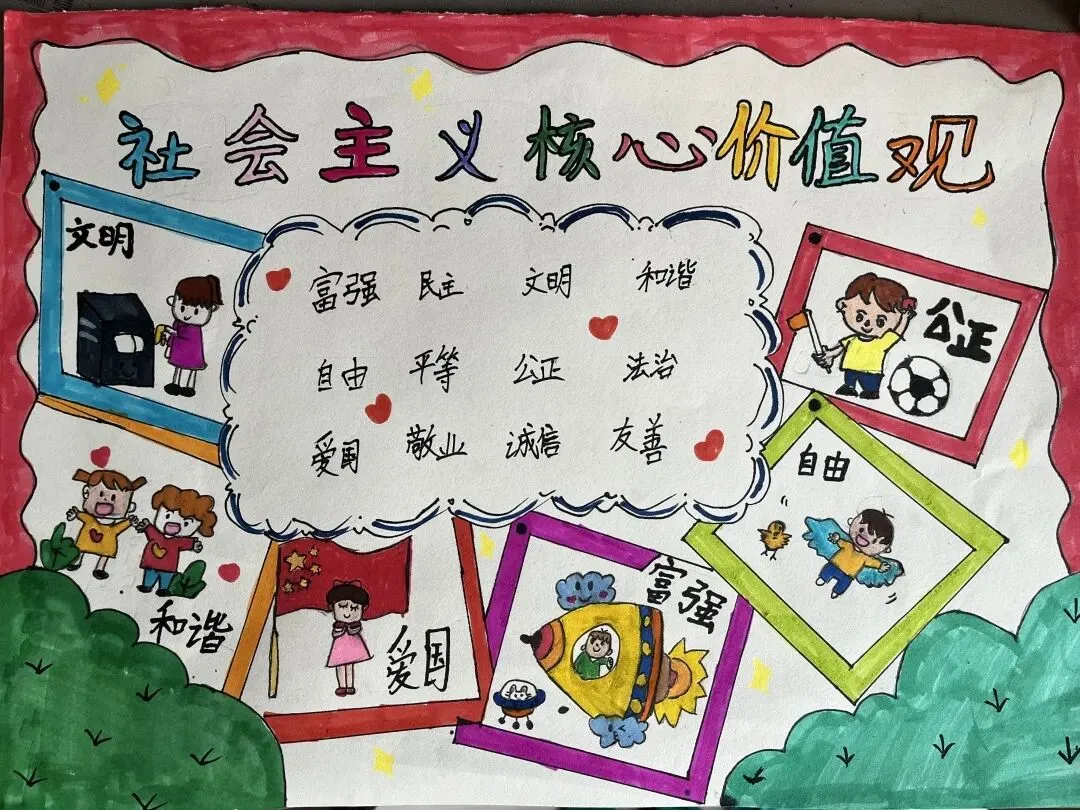 社会主义核心价值观
文明
富强 民主 文明 和谐
自由 平等 公正 法治
爱国 敬业 诚信 友善
公正
自由
和谐
爱国
富强